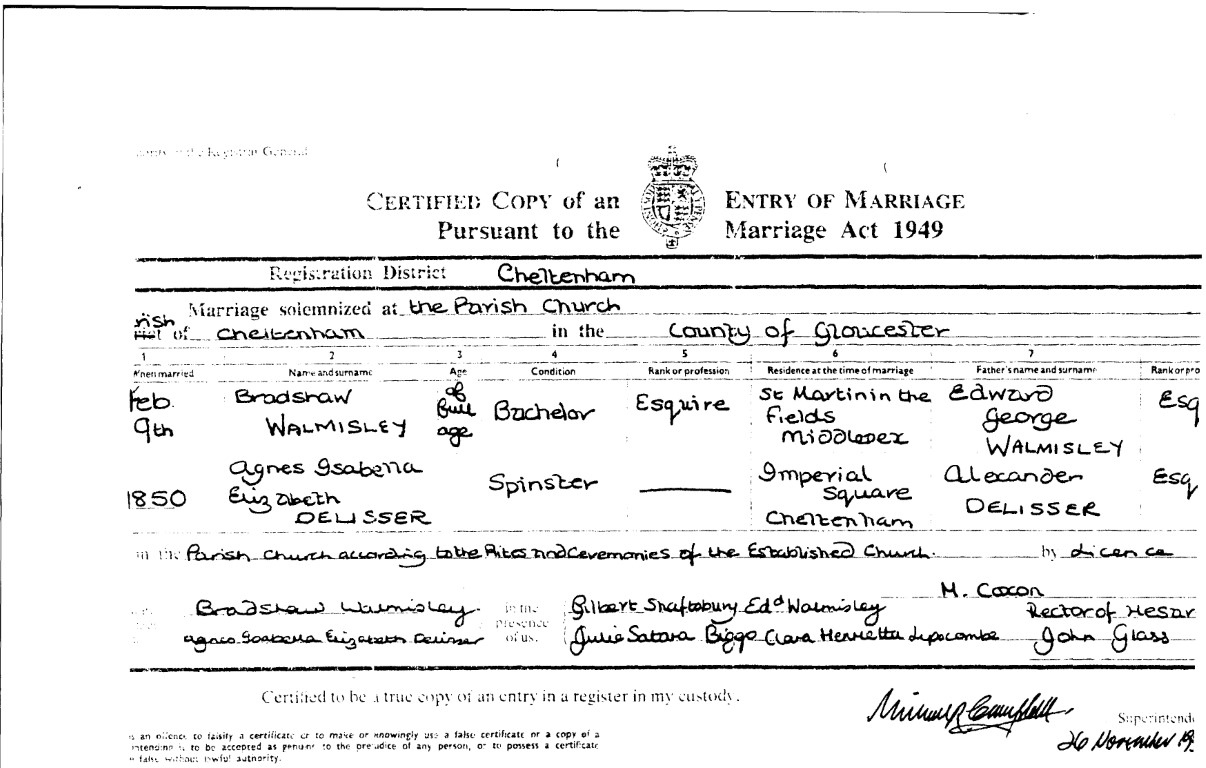 the Registrar General
CERTIFIED COPY of an ENTRY OF MARRIAGE
Pursuant to the Marriage Act 1949
Registration District Cheltenham
Marriage solemnized at the Parish Church
rish
of Cheltenham in the County of Gloucester
1 2 3 4 5 6 7
When married Name and surname Age Condition Rank or profession Residence at the time of marriage Father's name and surname Rank or pro
Feb. Bradshaw of Bachelor Esquire St Martin in the Edward Esq
9th WALMISLEY full Fields George
age Middlesex WALMISLEY
Agnes Isabella Spinster Imperial Alexander Esq
1850 Elizabeth Square DELISSER
DELISSER Cheltenham
in the Parish Church according to the Rites and Ceremonies of the Established Church. by Licence
M. Coxon
Bradshaw Walmisley. in the Gilbert Shaftsbury Edd Walmisley Rector of Hesar
Agnes Isabella Elizabeth Delisser presence of us. Julie Satara Biggs Clara Henrietta Lipscombe John Glass
Certified to be a true copy of an entry in a register in my custody.
Campbell Superintend
26 November 19
is an offence to falsify a certificate or to make or knowingly use a false certificate or a copy of a
intending it to be accepted as genuine to the prejudice of any person, or to possess a certificate
false without lawful authority.